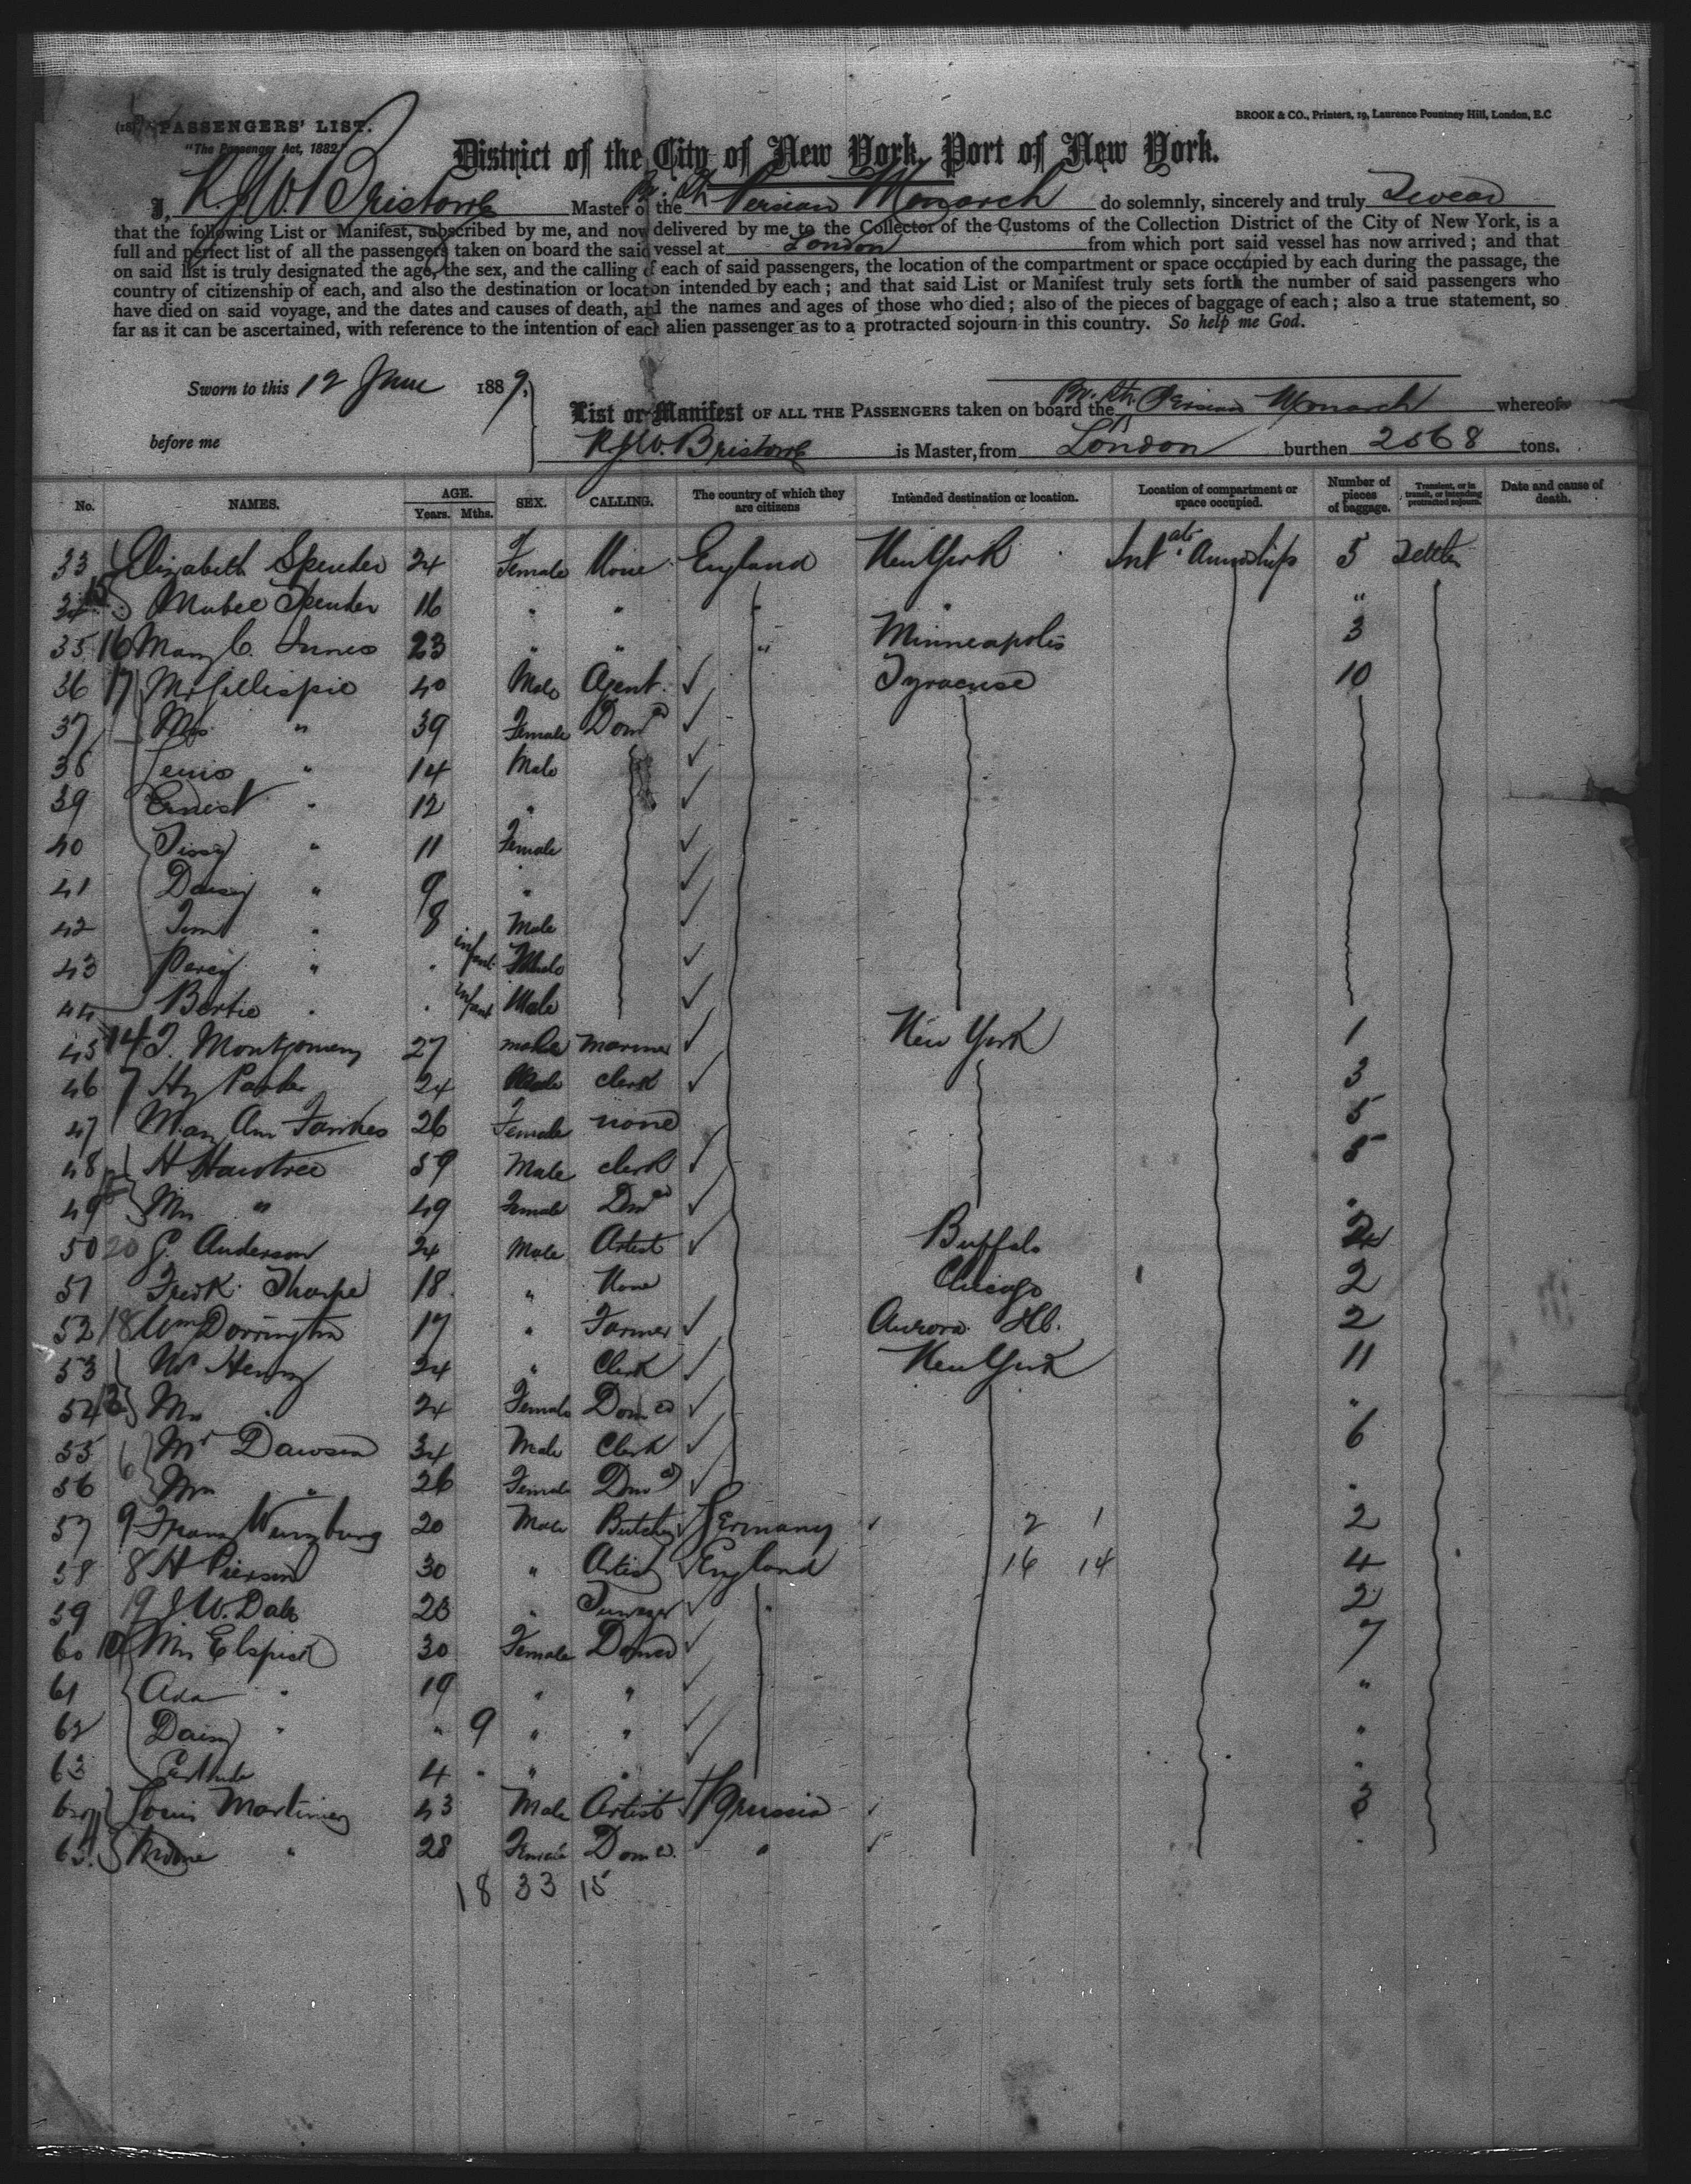 (188 PASSENGERS' LIST.
BROOK & CO., Printers, 19, Laurence Pountney Hill, London, E.C
"The Passenger Act, 1882."
District of the City of New York, Port of New York.
I, R.J.W. Bristowe Master of the Br. St. Persian Monarch do solemnly, sincerely and truly Swear
that the following List or Manifest, subscribed by me, and now delivered by me to the Collector of the Customs of the Collection District of the City of New York, is a
full and perfect list of all the passengers taken on board the said vessel at London from which port said vessel has now arrived; and that
on said list is truly designated the age, the sex, and the calling of each of said passengers, the location of the compartment or space occupied by each during the passage, the
country of citizenship of each, and also the destination or location intended by each; and that said List or Manifest truly sets forth the number of said passengers who
have died on said voyage, and the dates and causes of death, and the names and ages of those who died; also of the pieces of baggage of each; also a true statement, so
far as it can be ascertained, with reference to the intention of each alien passenger as to a protracted sojourn in this country. So help me God.
Sworn to this 12 June 1889,
List or Manifest OF ALL THE PASSENGERS taken on board the Br. St. Persian Monarch whereof
before me
R.J.W. Bristowe is Master, from London burthen 2568 tons.
No. NAMES. AGE. Years. Mths. SEX. CALLING. The country of which they are citizens Intended destination or location. Location of compartment or space occupied. Number of pieces of baggage. Transient, or in transit, or intending protracted sojourn. Date and cause of death.
33 Elizabeth Spender 24 Female None England New York Int ab. Amidships 5 Settler
34 15 Mabel Spender 16 " " " " "
35 16 Mary C. Innes 23 " " " Minneapolis 3
36 17 Mr Gillispie 40 Male Agent ✓ Syracuse 10
37 Mrs " 39 Female Dom ✓
38 " 14 Male ✓
39 Ernest " 12 " ✓
40 " 11 Female ✓
41 Daisy " 9 " ✓
42 " 8 Male ✓
43 Percy " " infant Male ✓
44 Bertie " " infant Male ✓
45 14 J. Montgomery 27 male Mariner ✓ New York 1
46 7 Hy Parker 24 Male clerk ✓ 3
47 Mary Ann Fawkes 26 Female none 5
48 H Hawtree 59 Male clerk ✓ 5
49 Mrs " 49 Female Dom ✓ "
50 20 G. Anderson 24 Male Artist ✓ Buffalo
51 Fredk. Tharpe 18 " None Chicago 2
52 18 Wm Dorrington 17 " Farmer ✓ Aurora 2
53 Mr Henry 24 " Clerk ✓ New York 11
54 Mrs " 24 Female Dom ✓ "
55 6 Mr Dawson 34 Male Clerk ✓ 6
56 Mrs " 26 Female Dom ✓ "
57 9 Franz Wurzburg 20 Male Butcher ✓ Germany ✓ 2 1 2
58 8 H Pierson 30 " Artist England 16 14 4
59 19 J.W. Dale 23 " ✓ " 2
60 10 Mrs Elspick 30 Female Dom ✓ 7
61 Ada " 19 " " ✓ "
62 Daisy " " 9 " " ✓ "
63 Gertrude 4 " " " ✓ "
64 Louis Martiney 43 Male Artist ✓ Prussia ✓ 3
65 " 28 Female Dom ✓ " ✓ "
18 33 15